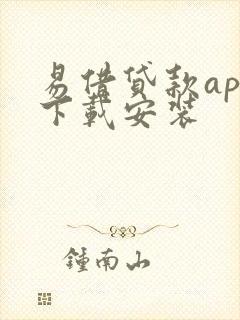 易借贷款ap
下载安装
鍾南山